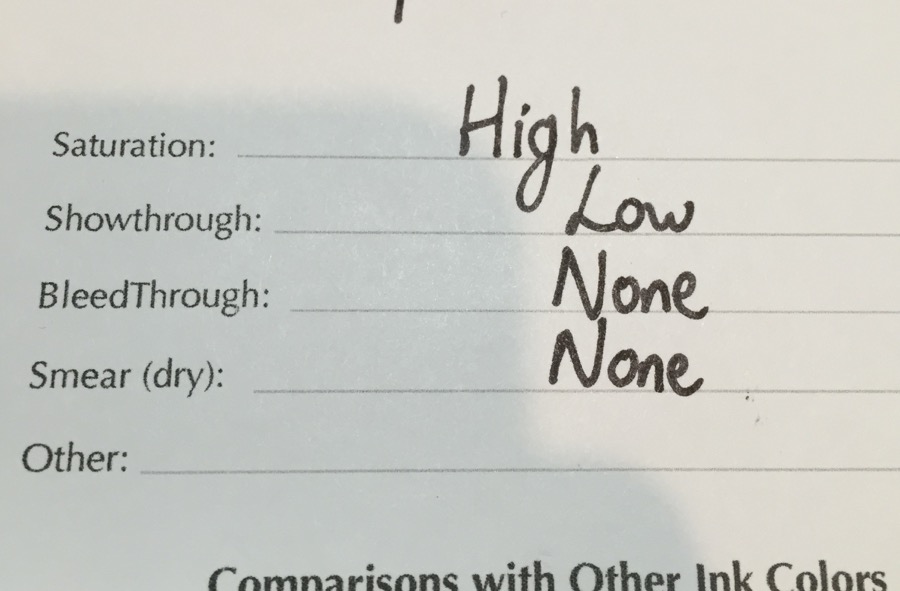 Saturation: High
Showthrough: Low
BleedThrough: None
Smear (dry): None
Other:
Comparisons with Other Ink Colors